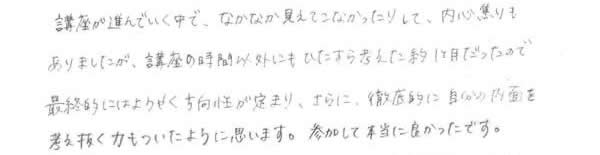 講座が進んでいく中で、なかなか見えてこなかったりして、内心焦りも
ありましたが、講座の時間以外にもひたすら考えた約1ヶ月だったので
最終的にはようやく方向性が定まり、さらに、徹底的に自分の内面を
考え抜く力もついたように思います。参加して本当に良かったです。